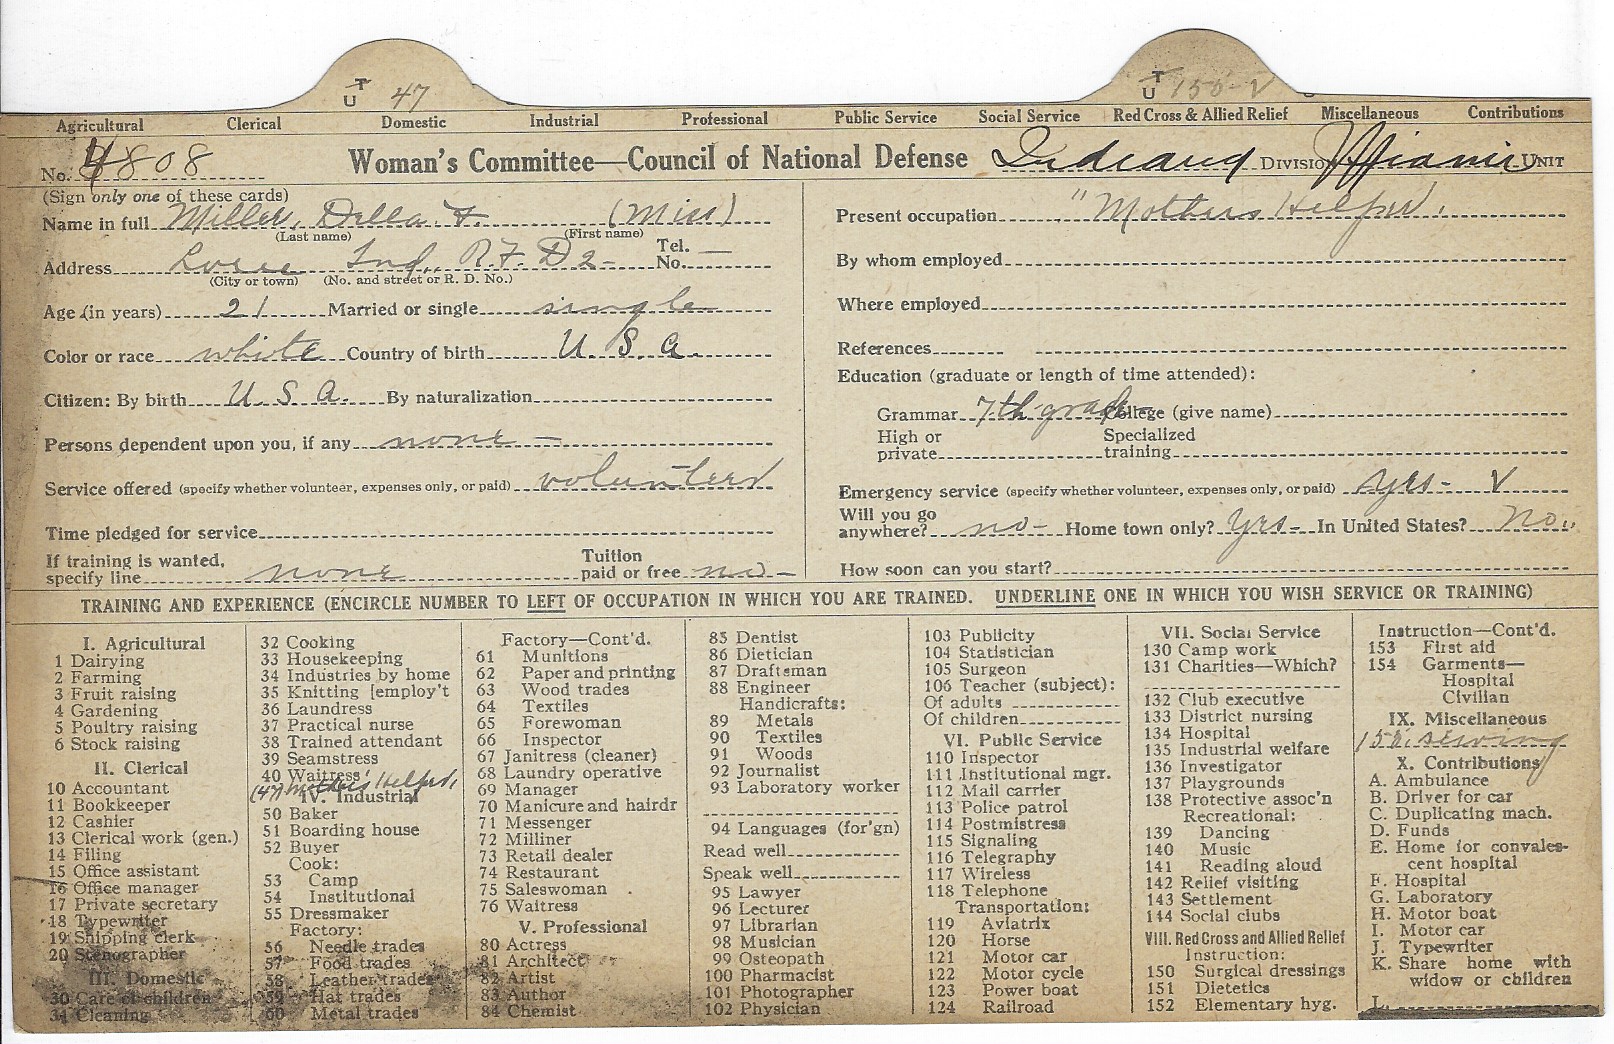 T
U 47
T
U 155-V
Agricultural Clerical Domestic Industrial Professional Public Service Social Service Red Cross & Allied Relief Miscellaneous Contributions
No. 4808 Woman's Committee—Council of National Defense Indiana DIVISION Miami UNIT
(Sign only one of these cards)
Name in full Miller, Della F. (Miss)
(Last name) (First name)
Address Loree Ind., R. F. D 2- Tel. No. —
(City or town) (No. and street or R. D. No.)
Age (in years) 21 Married or single single
Color or race white Country of birth U. S. A.
Citizen: By birth U. S. A. By naturalization
Persons dependent upon you, if any none —
Service offered (specify whether volunteer, expenses only, or paid) volunteer
Time pledged for service
If training is wanted,
specify line none Tuition paid or free no—
Present occupation "Mothers Helper.
By whom employed
Where employed
References
Education (graduate or length of time attended):
Grammar 7th grade College (give name)
High or private Specialized training
Emergency service (specify whether volunteer, expenses only, or paid) yes- V
Will you go anywhere? no- Home town only? yes- In United States? No.
How soon can you start?
TRAINING AND EXPERIENCE (ENCIRCLE NUMBER TO LEFT OF OCCUPATION IN WHICH YOU ARE TRAINED. UNDERLINE ONE IN WHICH YOU WISH SERVICE OR TRAINING)
I. Agricultural
1 Dairying
2 Farming
3 Fruit raising
4 Gardening
5 Poultry raising
6 Stock raising
II. Clerical
10 Accountant
11 Bookkeeper
12 Cashier
13 Clerical work (gen.)
14 Filing
15 Office assistant
16 Office manager
17 Private secretary
18 Typewriter
19 Shipping clerk
20 Stenographer
III. Domestic
30 Care of children
31 Cleaning
32 Cooking
33 Housekeeping
34 Industries by home
35 Knitting [employ't
36 Laundress
37 Practical nurse
38 Trained attendant
39 Seamstress
40 Waitress
(47) Mothers Helper,
IV. Industrial
50 Baker
51 Boarding house
52 Buyer
Cook:
53 Camp
54 Institutional
55 Dressmaker
Factory:
56 Needle trades
57 Food trades
58 Leather trades
59 Hat trades
60 Metal trades
Factory—Cont'd.
61 Munitions
62 Paper and printing
63 Wood trades
64 Textiles
65 Forewoman
66 Inspector
67 Janitress (cleaner)
68 Laundry operative
69 Manager
70 Manicure and hairdr
71 Messenger
72 Milliner
73 Retail dealer
74 Restaurant
75 Saleswoman
76 Waitress
V. Professional
80 Actress
81 Architect
82 Artist
83 Author
84 Chemist
85 Dentist
86 Dietician
87 Draftsman
88 Engineer
Handicrafts:
89 Metals
90 Textiles
91 Woods
92 Journalist
93 Laboratory worker
94 Languages (for'gn)
Read well
Speak well
95 Lawyer
96 Lecturer
97 Librarian
98 Musician
99 Osteopath
100 Pharmacist
101 Photographer
102 Physician
103 Publicity
104 Statistician
105 Surgeon
106 Teacher (subject):
Of adults
Of children
VI. Public Service
110 Inspector
111 Institutional mgr.
112 Mail carrier
113 Police patrol
114 Postmistress
115 Signaling
116 Telegraphy
117 Wireless
118 Telephone
Transportation:
119 Aviatrix
120 Horse
121 Motor car
122 Motor cycle
123 Power boat
124 Railroad
VII. Social Service
130 Camp work
131 Charities—Which?
132 Club executive
133 District nursing
134 Hospital
135 Industrial welfare
136 Investigator
137 Playgrounds
138 Protective assoc'n
Recreational:
139 Dancing
140 Music
141 Reading aloud
142 Relief visiting
143 Settlement
144 Social clubs
VIII. Red Cross and Allied Relief
Instruction:
150 Surgical dressings
151 Dietetics
152 Elementary hyg.
Instruction—Cont'd.
153 First aid
154 Garments—
Hospital
Civilian
IX. Miscellaneous
155. sewing
X. Contributions
A. Ambulance
B. Driver for car
C. Duplicating mach.
D. Funds
E. Home for convales-
cent hospital
F. Hospital
G. Laboratory
H. Motor boat
I. Motor car
J. Typewriter
K. Share home with
widow or children
L.